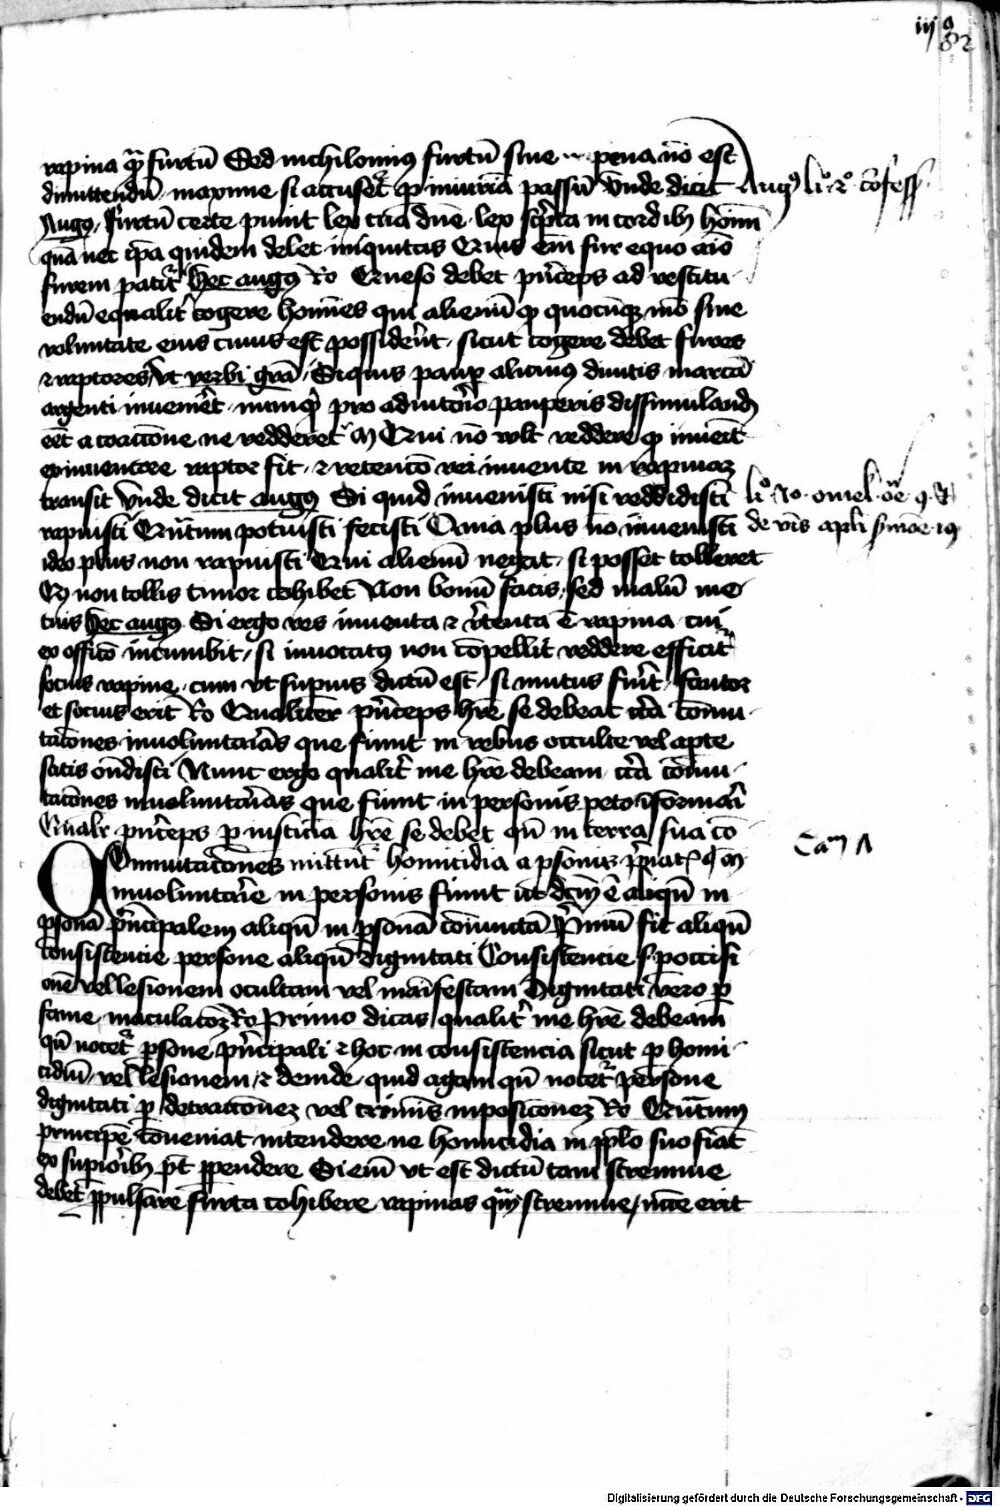 iij 9
82
rapina q̄ꝫ furtū Sed nichilominꝰ furtū sine pena nō est
dimittendū maxime si accuset͛ ꝑ iniuriā passū Vnde dicit Augꝰ li° 2° cōfess
Augꝰ Furtū certe punit lex tua dn̄e lex sc̄pta in cordibꝫ hoīm
quā nec ip̄a quidem delet iniquitas Quis em̄ fur equo aīo
furem patit͛ hec augꝰ Ro Queso debet p̄nceps ad restitu
endū equalit͛ cogere homīes qui alienū ꝙ quocūqꝫ mō sine
voluntate eius cuius est possider̄t sicut cogere debet fures
⁊ raptores Vt verbi gr̄a Siquis paup̄ alicuiꝰ diuitis marcā
argenti inuener̄it nūquid pro adiutorio pauperis dissimulandꝫ
eēt a coaccōne ne redderet Qui nō vult reddere ꝙ inuenit
ex inuentore raptor fit ⁊ retencō rei inuente in rapinaꝫ
transit Vnde dicit augꝰ Si quid inuenisti nisi reddidisti
li° omel
rapuisti Quātum potuisti fecisti Quia plus nō inuenisti
de v̄bis apl̄i
ideo plus non rapuisti Qui alienū negat si posset tolleret
Qꝫ non tollis timor cohibet Non bonū facis sed malū me
tuis Hec augꝰ Si ergo res inuenta ⁊ r̄tenta ē rapina cui
ex officō incumbit si inuocatꝰ non cōpellit reddere efficit͛
socius rapine cum vt supius dictū est si mutus fu͛it fautor
et socius erit Ro Qualiter p̄nceps h̄re se debeat c̄ca cōmu
tacōnes inuoluntarias que fiunt in rebus occulte vel apte
satis on̄disti Nunc ergo qualit͛ me h̄re debeam c̄ca cōmu
tacōnes inuoluntarias que fiunt in personis peto īformari
Qualr̄ p̄nceps ꝑ iusticia h̄re se debet qn̄ in terra sua cō
Omutacōnes mittūt͛ homicidia a ꝑsonis p̄uatꝭ
Cam
inuoluntarie in personis fiunt ut dc̄m ē aliqn̄ in
ꝑsonā p̄ncipalem aliqn̄ in ꝑsonā coniunctā P͛mū fit aliqn̄
consistencie persone aliqn̄ dignitati Consistencie ꝑ occisi
onē vel lesionem ocultam vel māifestam Dignitati v̄ero ꝑ
fame maculacōꝫ Ro Primo dicas qualit͛ me h̄re debeam
qn̄ nocet͛ ꝑsone p̄ncipali ⁊ hoc in consistencia sicut ꝑ homi
cidiū vel lesionem ⁊ deinde quid agam qn̄ nocet͛ persone
dignitati ꝑ detraccōneꝫ vel criminis inposicōneꝫ Ro Quātum
principē cōueniat intendere ne homicidia in pp̄lo suo fiat
ex supiorībꝫ p̄t ꝑpendere Si em̄ vt est dictū tam strennue
debet ꝓpulsare furta cohibere rapinas qm̄ strennue